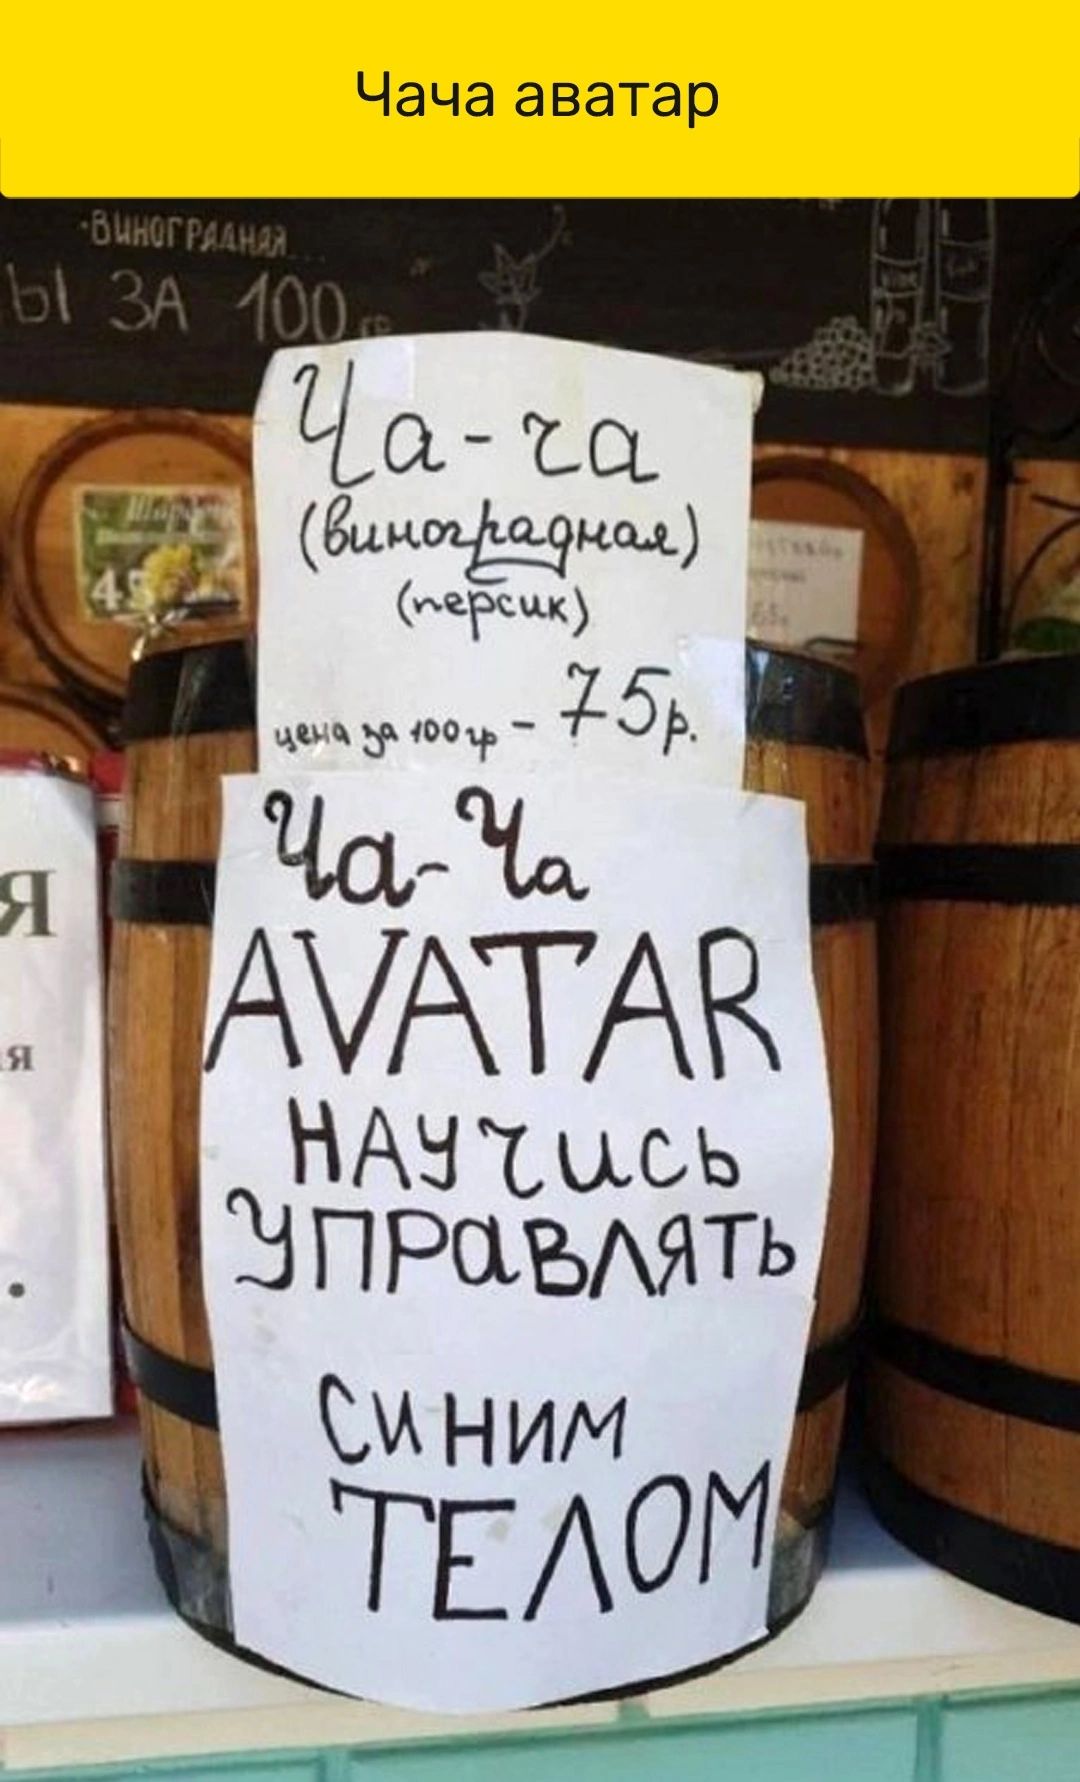 Чача аватар
·ВИНОГРАДНАЯ
Ы ЗА 100 гр
Ча-ча
(виноградная)
(персик)
цена за 100гр - 75р.
Ча-Ча
AVATAR
НАУчись
УПРаВЛЯТЬ
СИНИМ
ТЕЛОМ
45
Я
я